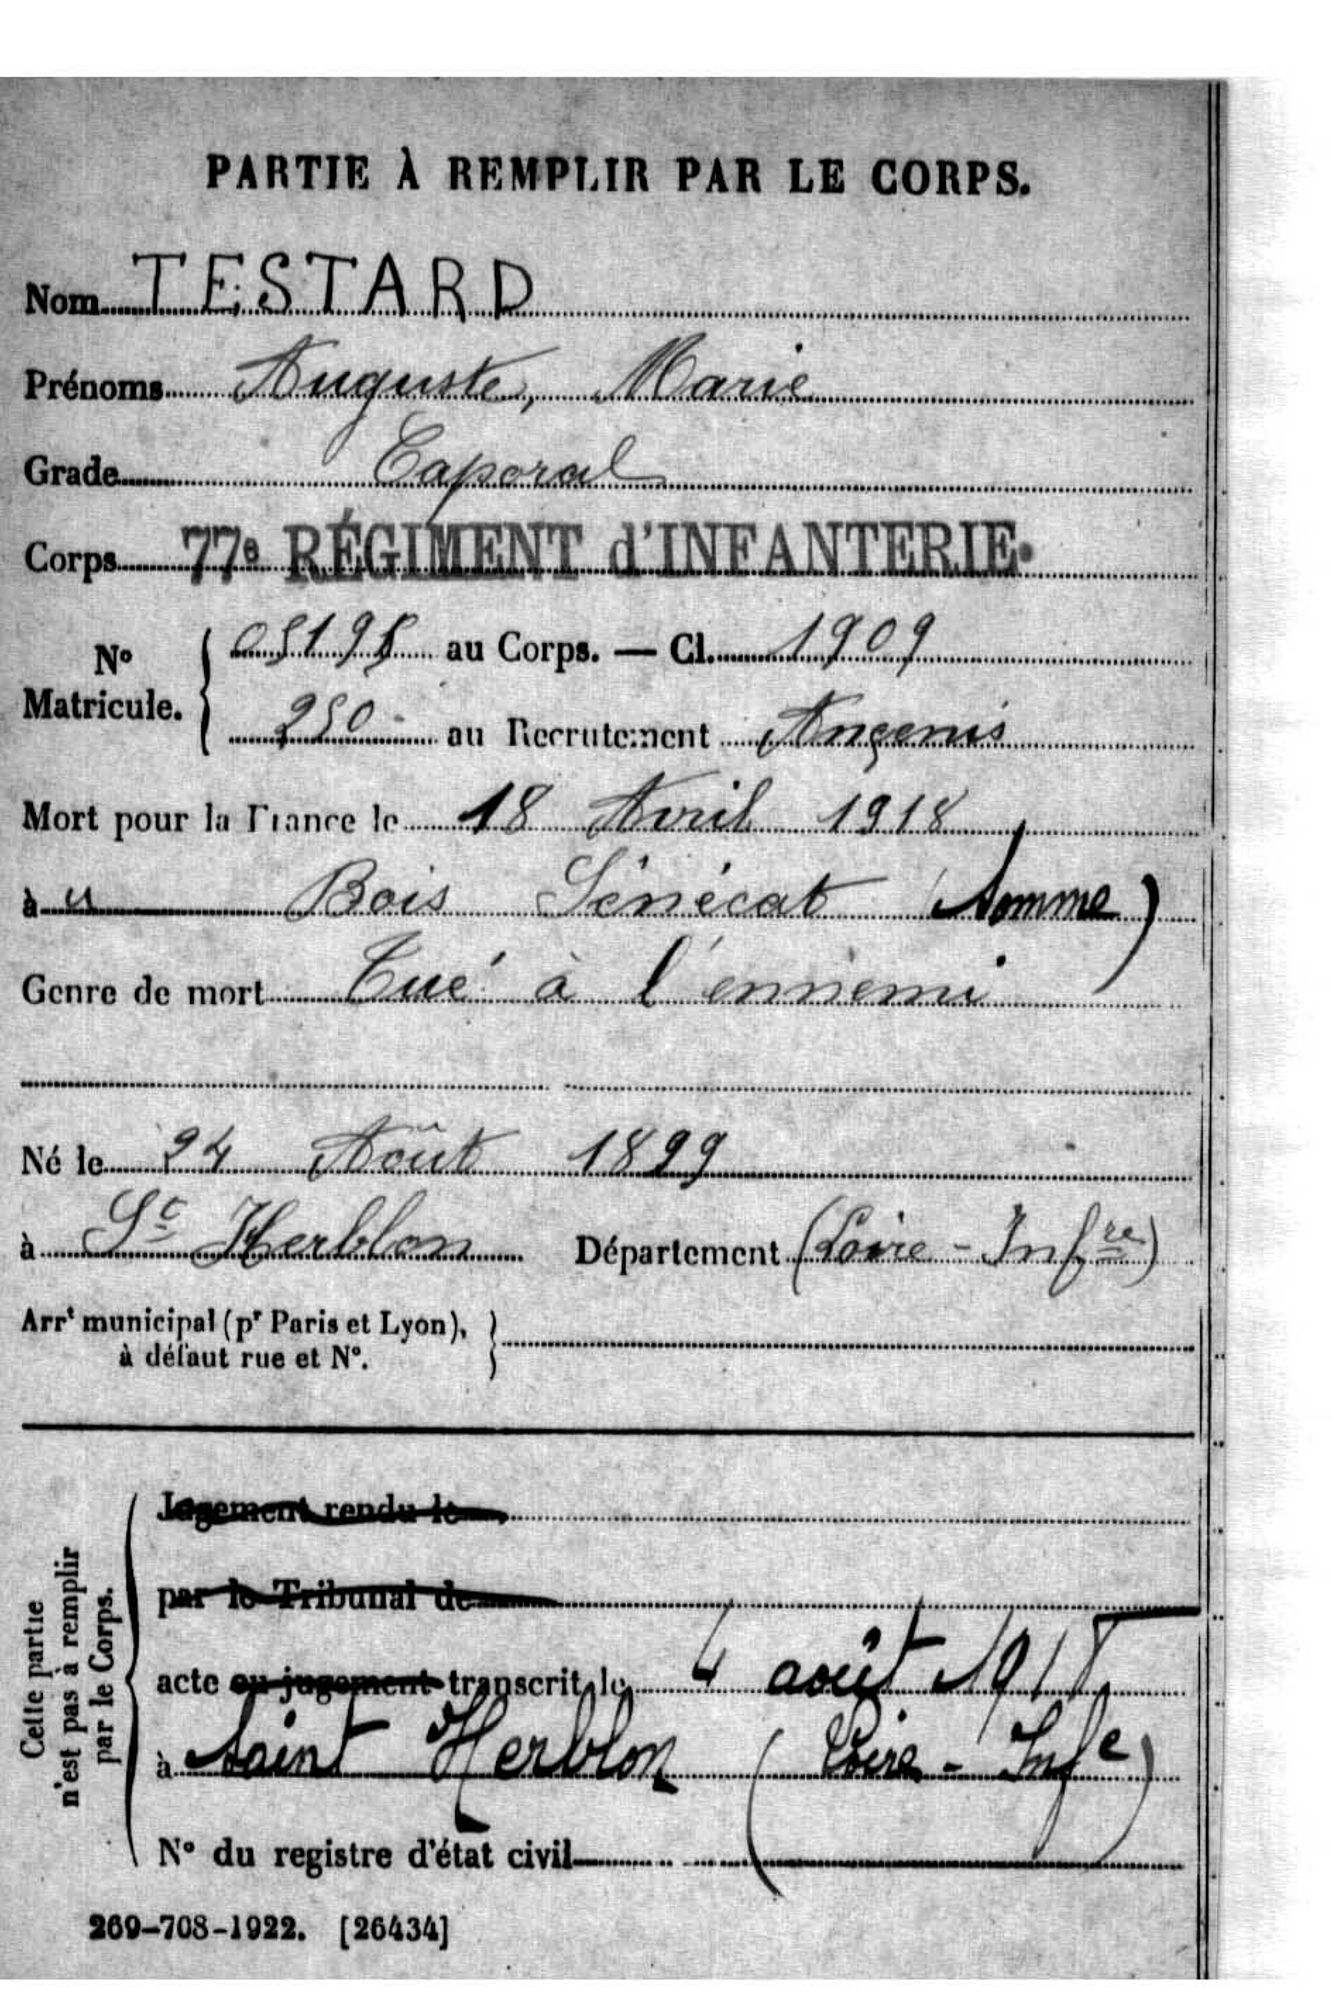 PARTIE À REMPLIR PAR LE CORPS.
Nom TESTARD
Prénoms Auguste, Marie
Grade Caporal
Corps 77e RÉGIMENT d'INFANTERIE.
No Matricule. { 05195 au Corps. — Cl. 1909
250 au Recrutement Ançenis
Mort pour la France le 18 Avril 1918
à u Bois Sénécat (Somme)
Genre de mort Tué à l'ennemi
Né le 24 Août 1899
à St Herblon Département (Loire-Infre)
Arrt municipal (pr Paris et Lyon),
à défaut rue et No.
Cette partie
n'est pas à remplir
par le Corps.
Jugement rendu le
par le Tribunal de
acte ou jugement transcrit le 4 août 1918
à Saint Herblon (Loire-Infe)
No du registre d'état civil
269-708-1922. [26434]